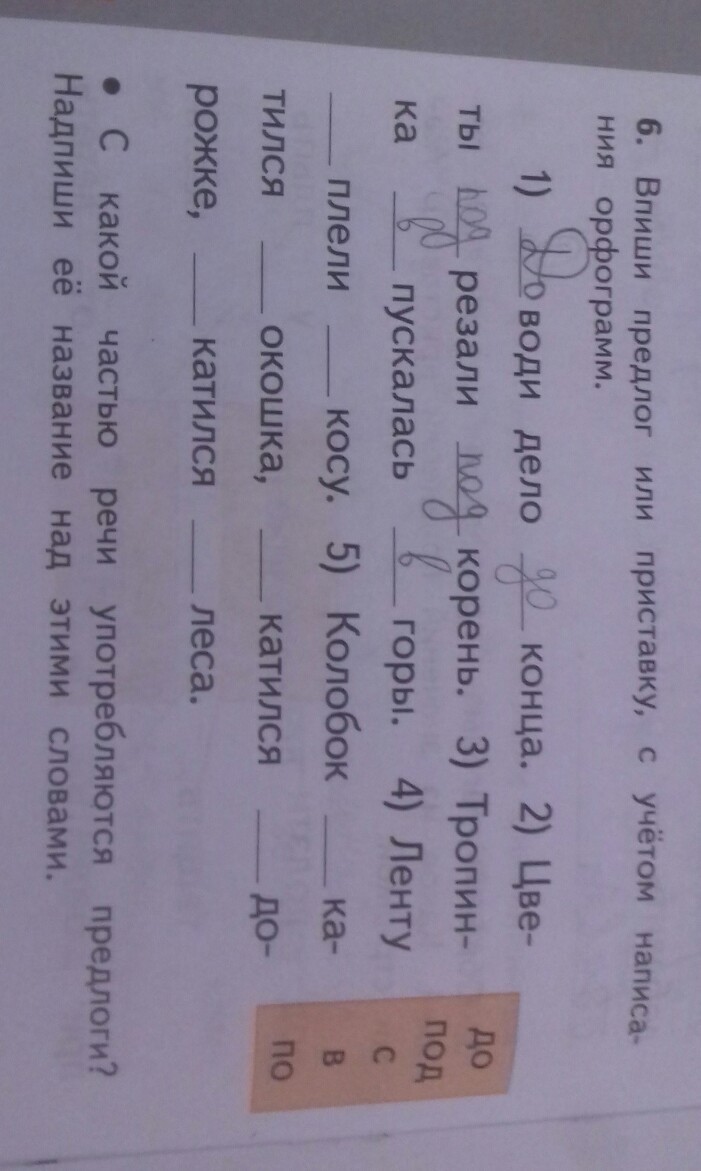 6. Впиши предлог или приставку, с учётом написа-
ния орфограмм.
1) До води дело до конца. 2) Цве-
ты под резали под корень. 3) Тропин-
ка в пускалась в горы. 4) Ленту
___ плели ___ косу. 5) Колобок ___ ка-
тился ___ окошка, ___ катился ___ до-
рожке, ___ катился ___ леса.
• С какой частью речи употребляются предлоги?
Надпиши её название над этими словами.
до
под
с
в
по